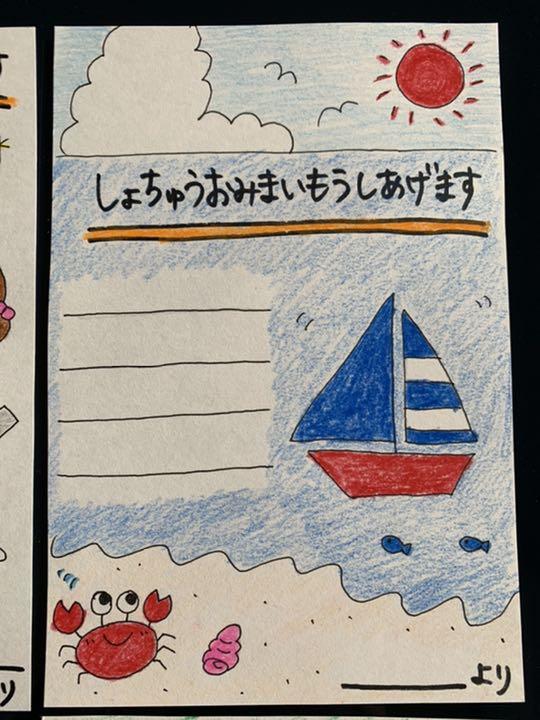 しょちゅうおみまいもうしあげます
より
り